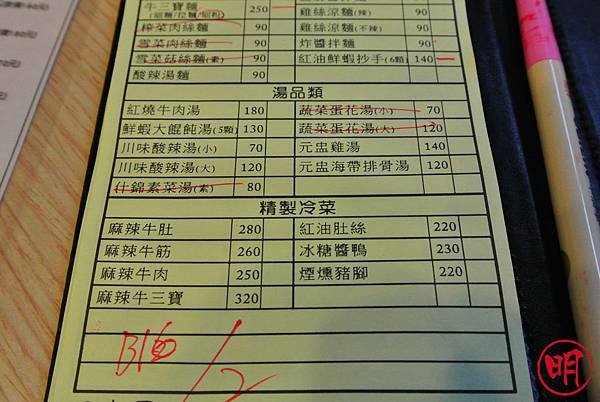 牛三寶麵 250 雞絲涼麵(辣) 90
(細麵/拉麵/細粉) 雞絲涼麵(不辣) 90
榨菜肉絲麵 90 炸醬拌麵 90
雪菜肉絲麵 90 紅油鮮蝦抄手(6顆) 140
雪菜菇絲麵(素) 90
酸辣湯麵 90
湯品類
紅燒牛肉湯 180 蔬菜蛋花湯(小) 70
鮮蝦大餛飩湯(5顆) 130 蔬菜蛋花湯(大) 120
川味酸辣湯(小) 70 元盅雞湯 140
川味酸辣湯(大) 120 元盅海帶排骨湯 120
什錦素菜湯(素) 80
精製冷菜
麻辣牛肚 280 紅油肚絲 220
麻辣牛筋 260 冰糖醬鴨 230
麻辣牛肉 250 煙燻豬腳 220
麻辣牛三寶 320
/2
明